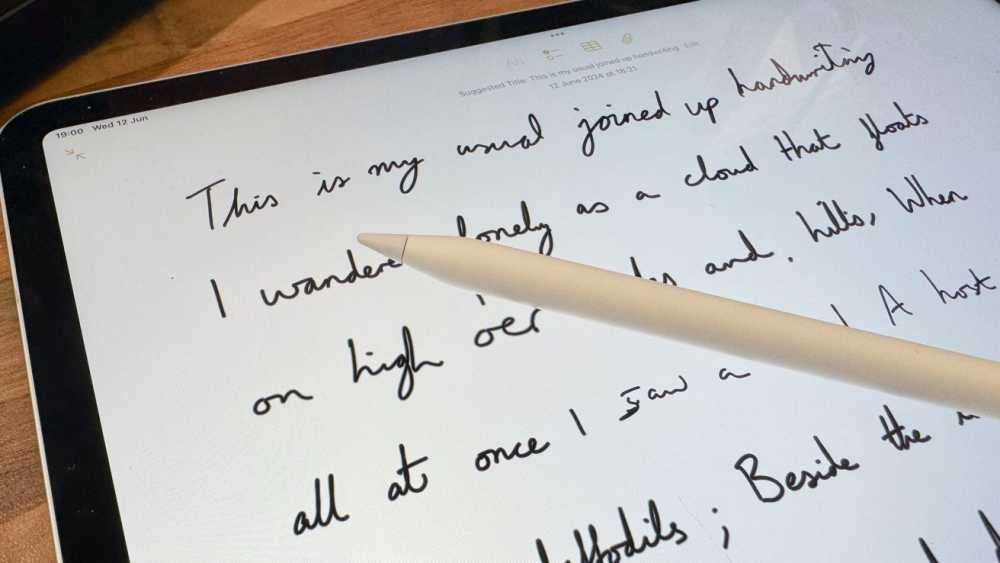 19:00 Wed 12 Jun
Suggested Title: This is my usual joined up handwriting Edit
12 June 2024 at 18:21
This is my usual joined up handwriting
I wandere lonely as a cloud that floats
on high oer and. hills, When
all at once I saw a A host
daffodils; Beside the